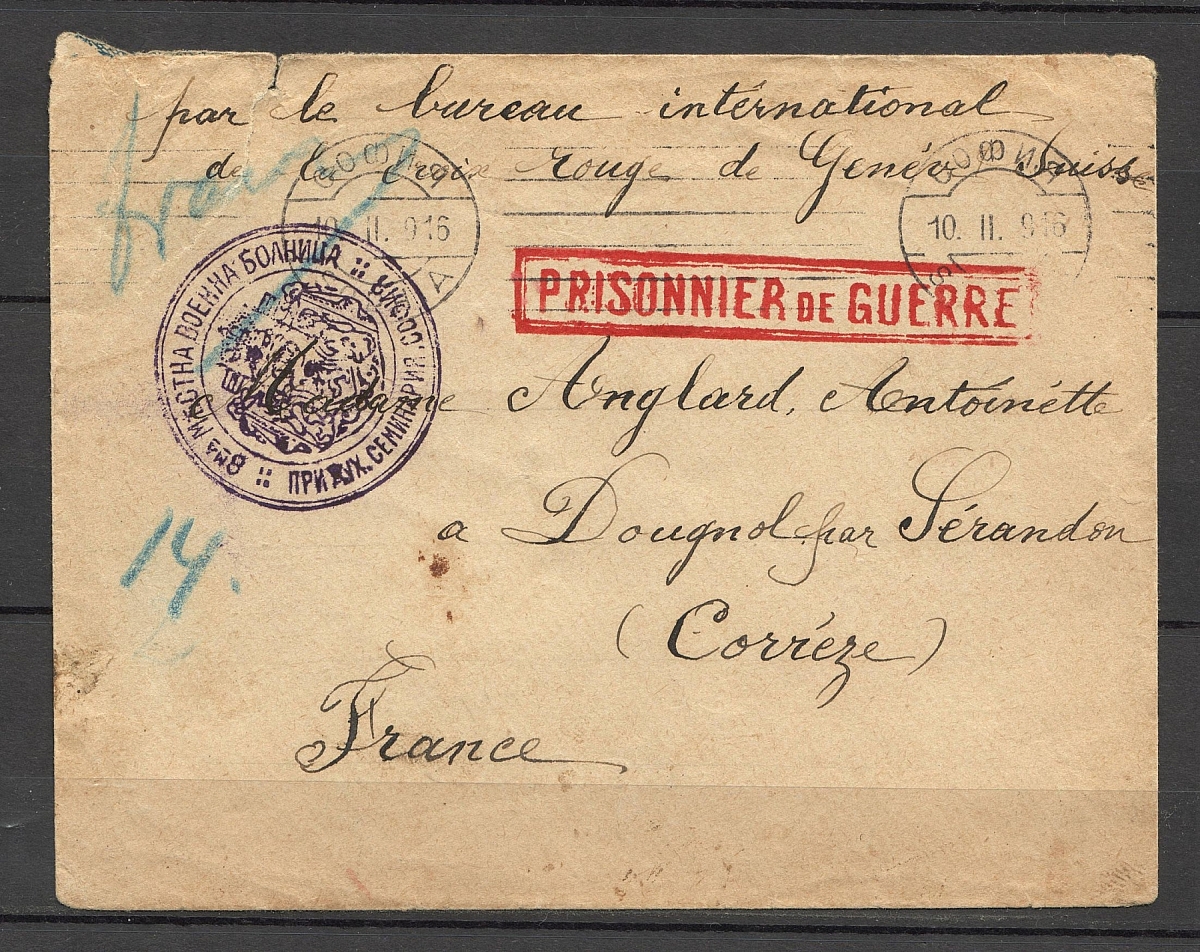 par le bureau international
de la Croix rouge de Genève Suisse
fran
СОФИЯ
10. II. 916
СОФИЯ
10. II. 916
PRISONNIER DE GUERRE
8МА МѢСТНА ВОЕННА БОЛНИЦА :: ПРИ ДУХ. СЕМИНАРИЯ СОФИЯ ::
Madame Anglard, Antoinétte
a Dougnol par Sérandon
14.
(Corrèze)
France